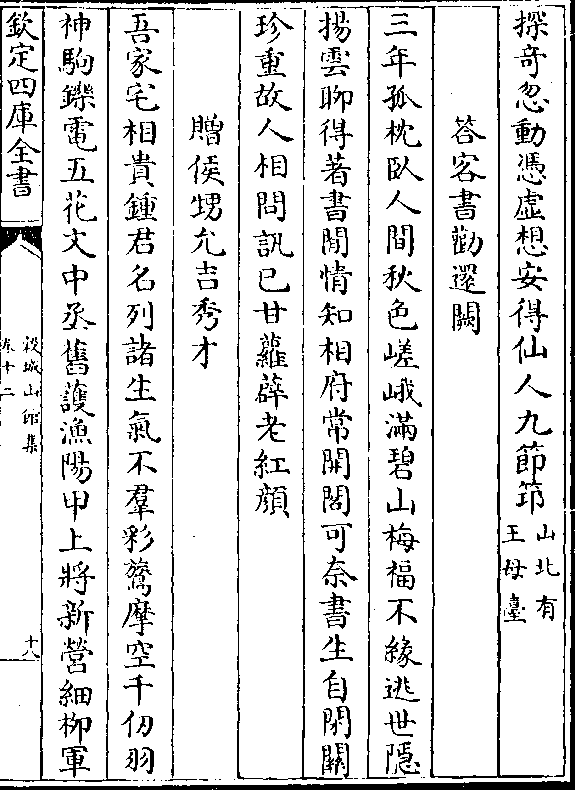 探奇忽動憑虛想安得仙人九節筇山北有
王母臺
答客書勸還闕
三年孤枕臥人間秋色嵯峨滿碧山梅福不緣逃世隱
揚雲聊得著書閒情知相府常開閤可奈書生自閉關
珍重故人相問訊已甘蘿薜老紅顔
贈侯甥允吉秀才
吾家宅相貴鍾君名列諸生氣不羣彩鷟摩空千仞羽
神駒鑠電五花文中丞舊護漁陽甲上將新營細柳軍
欽定四庫全書
穀城山館集
卷十二
十八